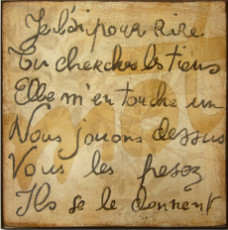 Je l'ai pour rire
Tu cherches les tiens
Elle m'en touche un
Nous jouons dessus
Vous les pesez
Ils se le donnent